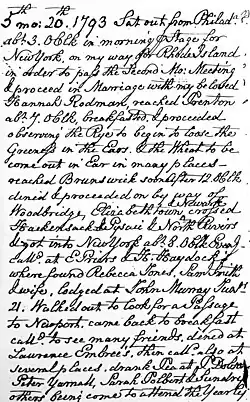 5th mo: 20th. 1793 Set out from Philada.
abt. 3. OClk in morning pr Stage for
New York, on my way for Rhode Island
in order to pass the Second Mo: Meeting
& proceed in Marriage with my beloved
Hannah Rodman, reached Trenton
abt. 7. OClk, breakfasted, & proceeded
observing the Rye to begin to loose the
Greeness in the Ears. & the Wheat to be
come out in Ear in many places—
reached Brunswick soon after 12. OClk.
dined & proceeded on by way of
Woodbridge, Elizabethtown, & Newark crossed
Hackensack & Pasaic & North Rivers
& got into New York abt. 8. OClk Eveng.
Calld. at E. Priors & H. Haydocks
where found Rebecca Jones, Saml. Smith
& wife, lodged at John Murray Junrs.
21. Walked out to look for a Passage
to Newport, came back to breakfast
calld. to see many friends, dined at
Lawrence Embree's, then calld. also at
several places, drank Tea at
Peter Yarnall, Sarah Talbert & Sundry
others being come to attend the Yearly